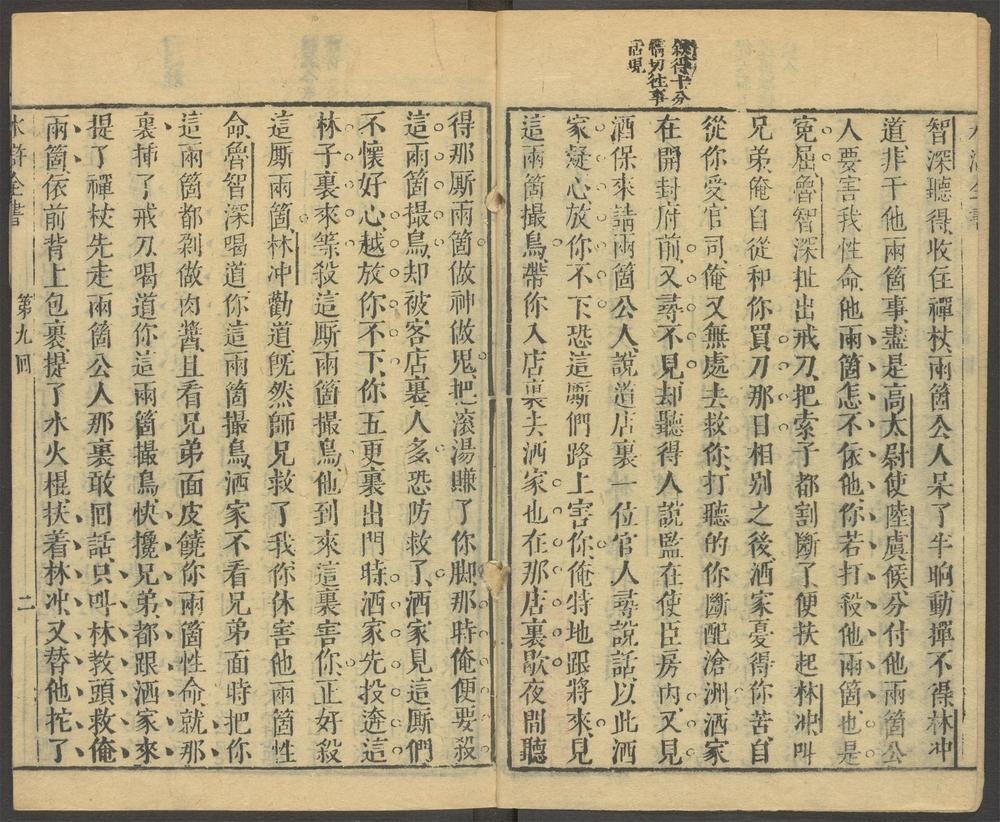 水滸全書
敘得十分
情切往事
活現
智深聽得收住禪杖兩箇公人呆了半晌動撣不得林冲
道非干他兩箇事盡是高太尉使陸虞候分付他兩箇公
人要害我性命他兩箇怎不依他你若打殺他兩箇也是
寃屈魯智深扯出戒刀把索子都割斷了便扶起林冲叫
兄弟俺自從和你買刀那日相別之後洒家憂得你苦自
從你受官司俺又無處去救你打聽的你斷配滄洲洒家
在開封府前又尋不見却聽得人說監在使臣房內又見
酒保來請兩箇公人說道店裏一位官人尋說話以此洒
家疑心放你不下恐這廝們路上害你俺特地跟將來見
這兩箇撮鳥帶你入店裏去洒家也在那店裏歇夜間聽
得那厮兩箇做神做鬼把滾湯賺了你脚那時俺便要殺
這兩箇撮鳥却被客店裏人多恐防救了洒家見這厮們
不懷好心越放你不下你五更裏出門時洒家先投逩這
林子裏來等殺這厮兩箇撮鳥他到來這裏害你正好殺
這厮兩箇林冲勸道旣然師兄救了我你休害他兩箇性
命魯智深喝道你這兩箇撮鳥洒家不看兄弟面時把你
這兩箇都剁做肉醬且看兄弟面皮饒你兩箇性命就那
裏揷了戒刀喝道你這兩箇撮鳥快攙兄弟都跟洒家來
提了禪杖先走兩箇公人那裏敢回話只叫林教頭救俺
兩箇依前背上包裹提了水火棍扶着林冲又替他拕了
水滸全書
第九回
二